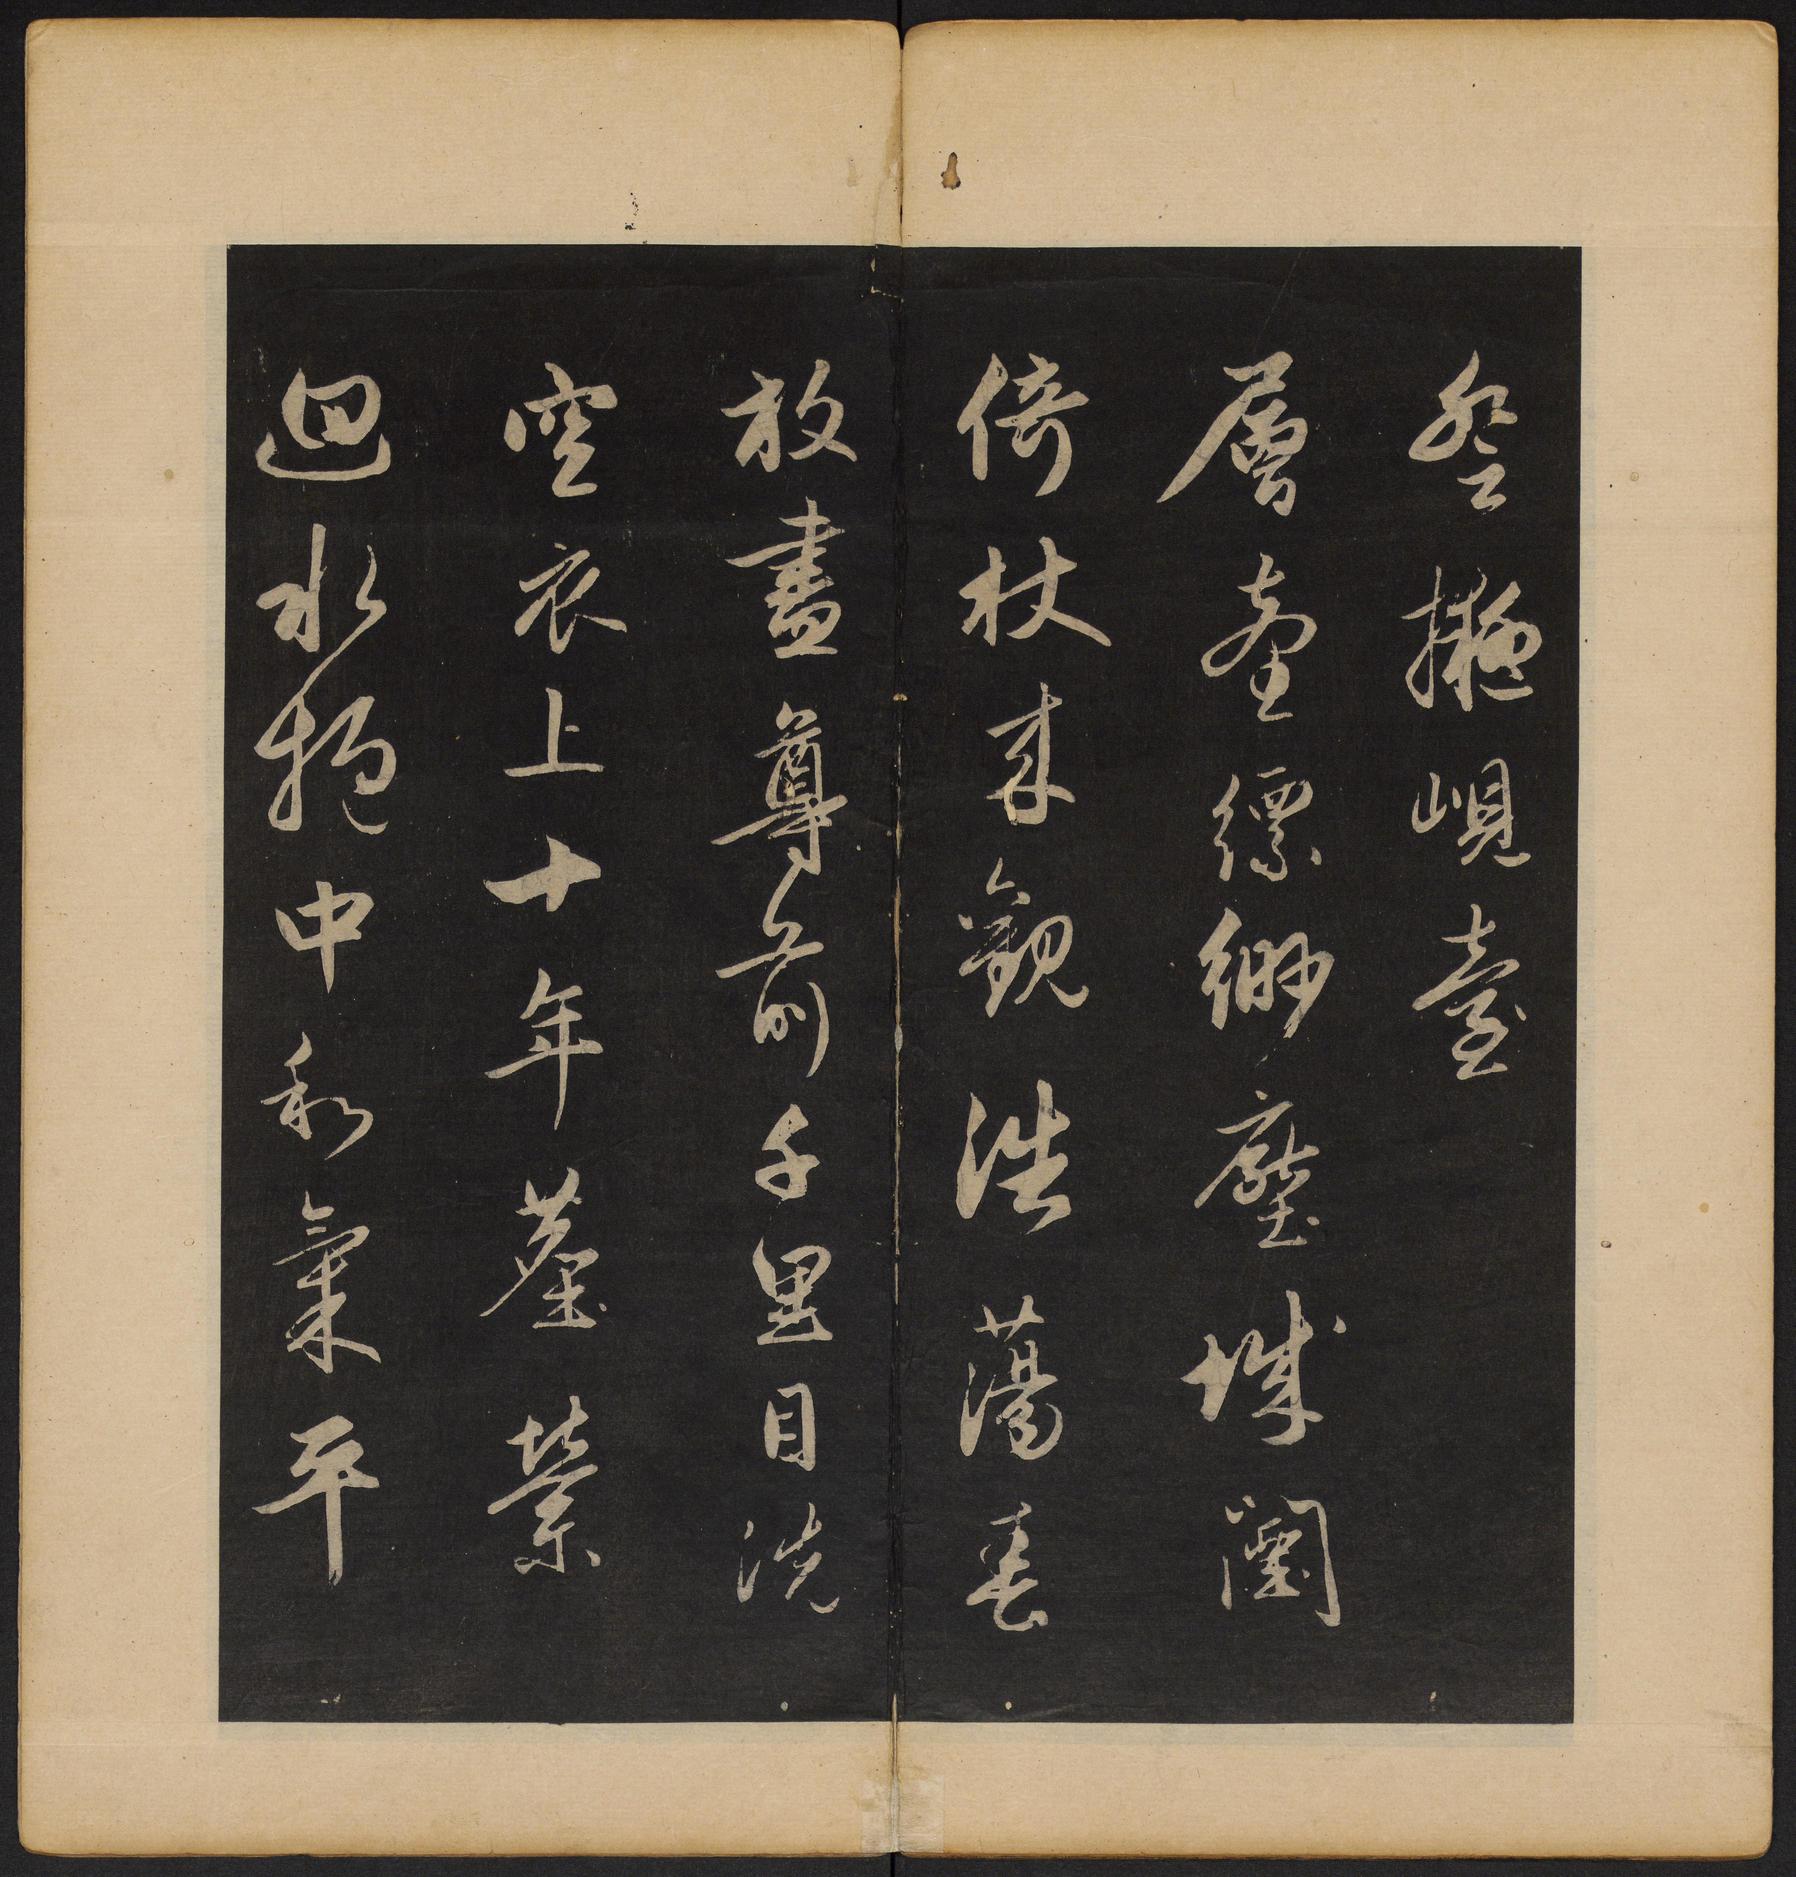 登擬峴臺
層臺縹緲壓城闉
倚杖來觀浩蕩春
放盡尊前千里目洗
空衣上十年塵縈
迴水抱中和氣平